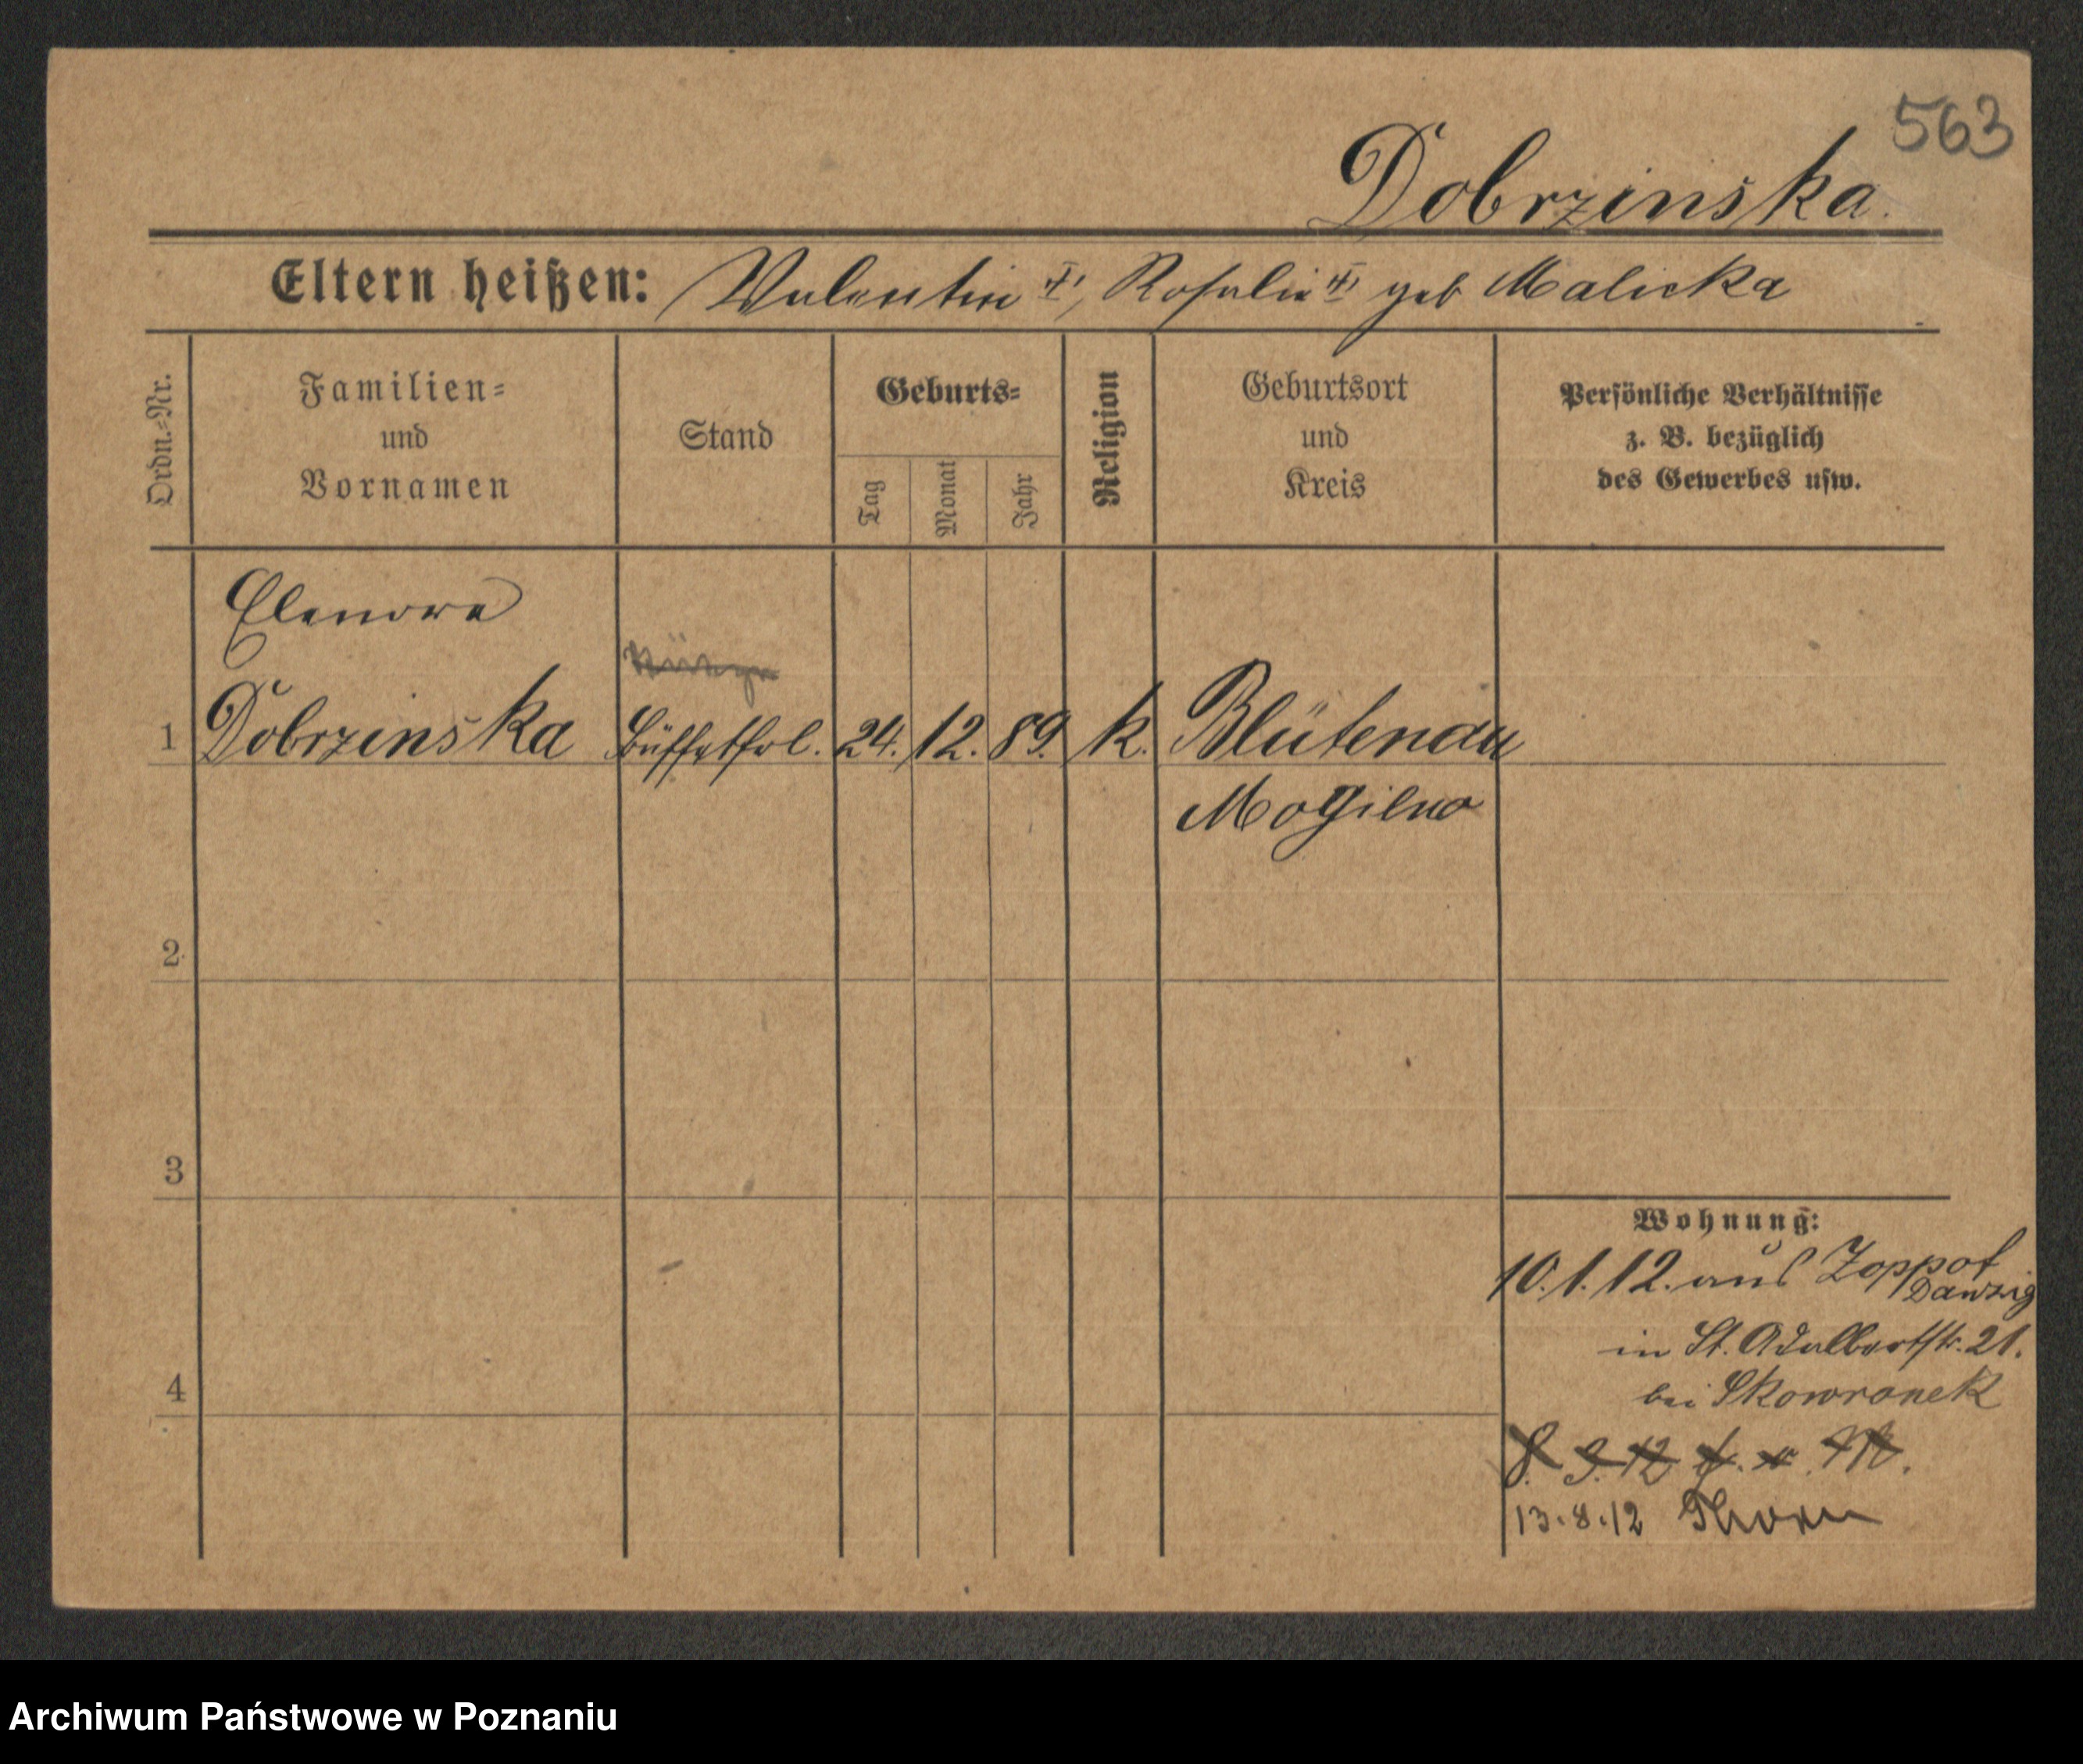 563
Dobrzinska.
Eltern heißen: Valentin †, Rosalie † geb Malicka
Ordn.-Nr.
Familien-
und
Vornamen
Stand
Geburts-
Tag
Monat
Jahr
Religion
Geburtsort
und
Kreis
Persönliche Verhältnisse
z. B. bezüglich
des Gewerbes usw.
Elenora
1 Dobrzinska Büffetfrl. 24. 12. 89. k. Blütenau
Mogilno
2
3
4
Wohnung:
10.1.12. aus Zoppot
Danzig
in St. Adalbertstr. 21.
bei Skowronek
13.8.12 Thorn
Archiwum Państwowe w Poznaniu